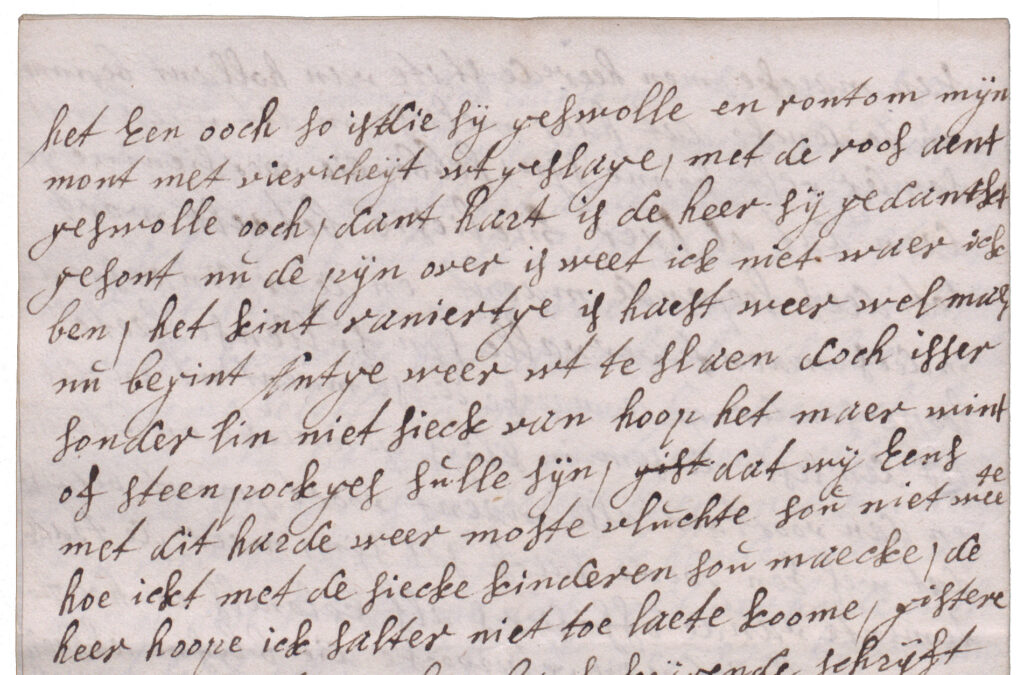 het Een ooch so ist die sÿ geswolle en rontom mÿn
mont met viericheÿt wt geslage, met de roos aent
geswolle ooch, dant hart is de heer sÿ gedanckt
gesont nu de pÿn over is weet ick niet waer ick
ben, het kint raniertge is haest weer wel maer
nu begint Antge weer wt te slaen doch isser
sonderlin niet sieck van hoop het maer wint
of steen pockges sulle sÿn, gist dat wÿ Eens
met dit harde weer moste vluchte sou niet weete
hoe ickt met de siecke kinderen sou maecke, de
heer hoope ick salter niet toe laete koome, gistere
schrÿft